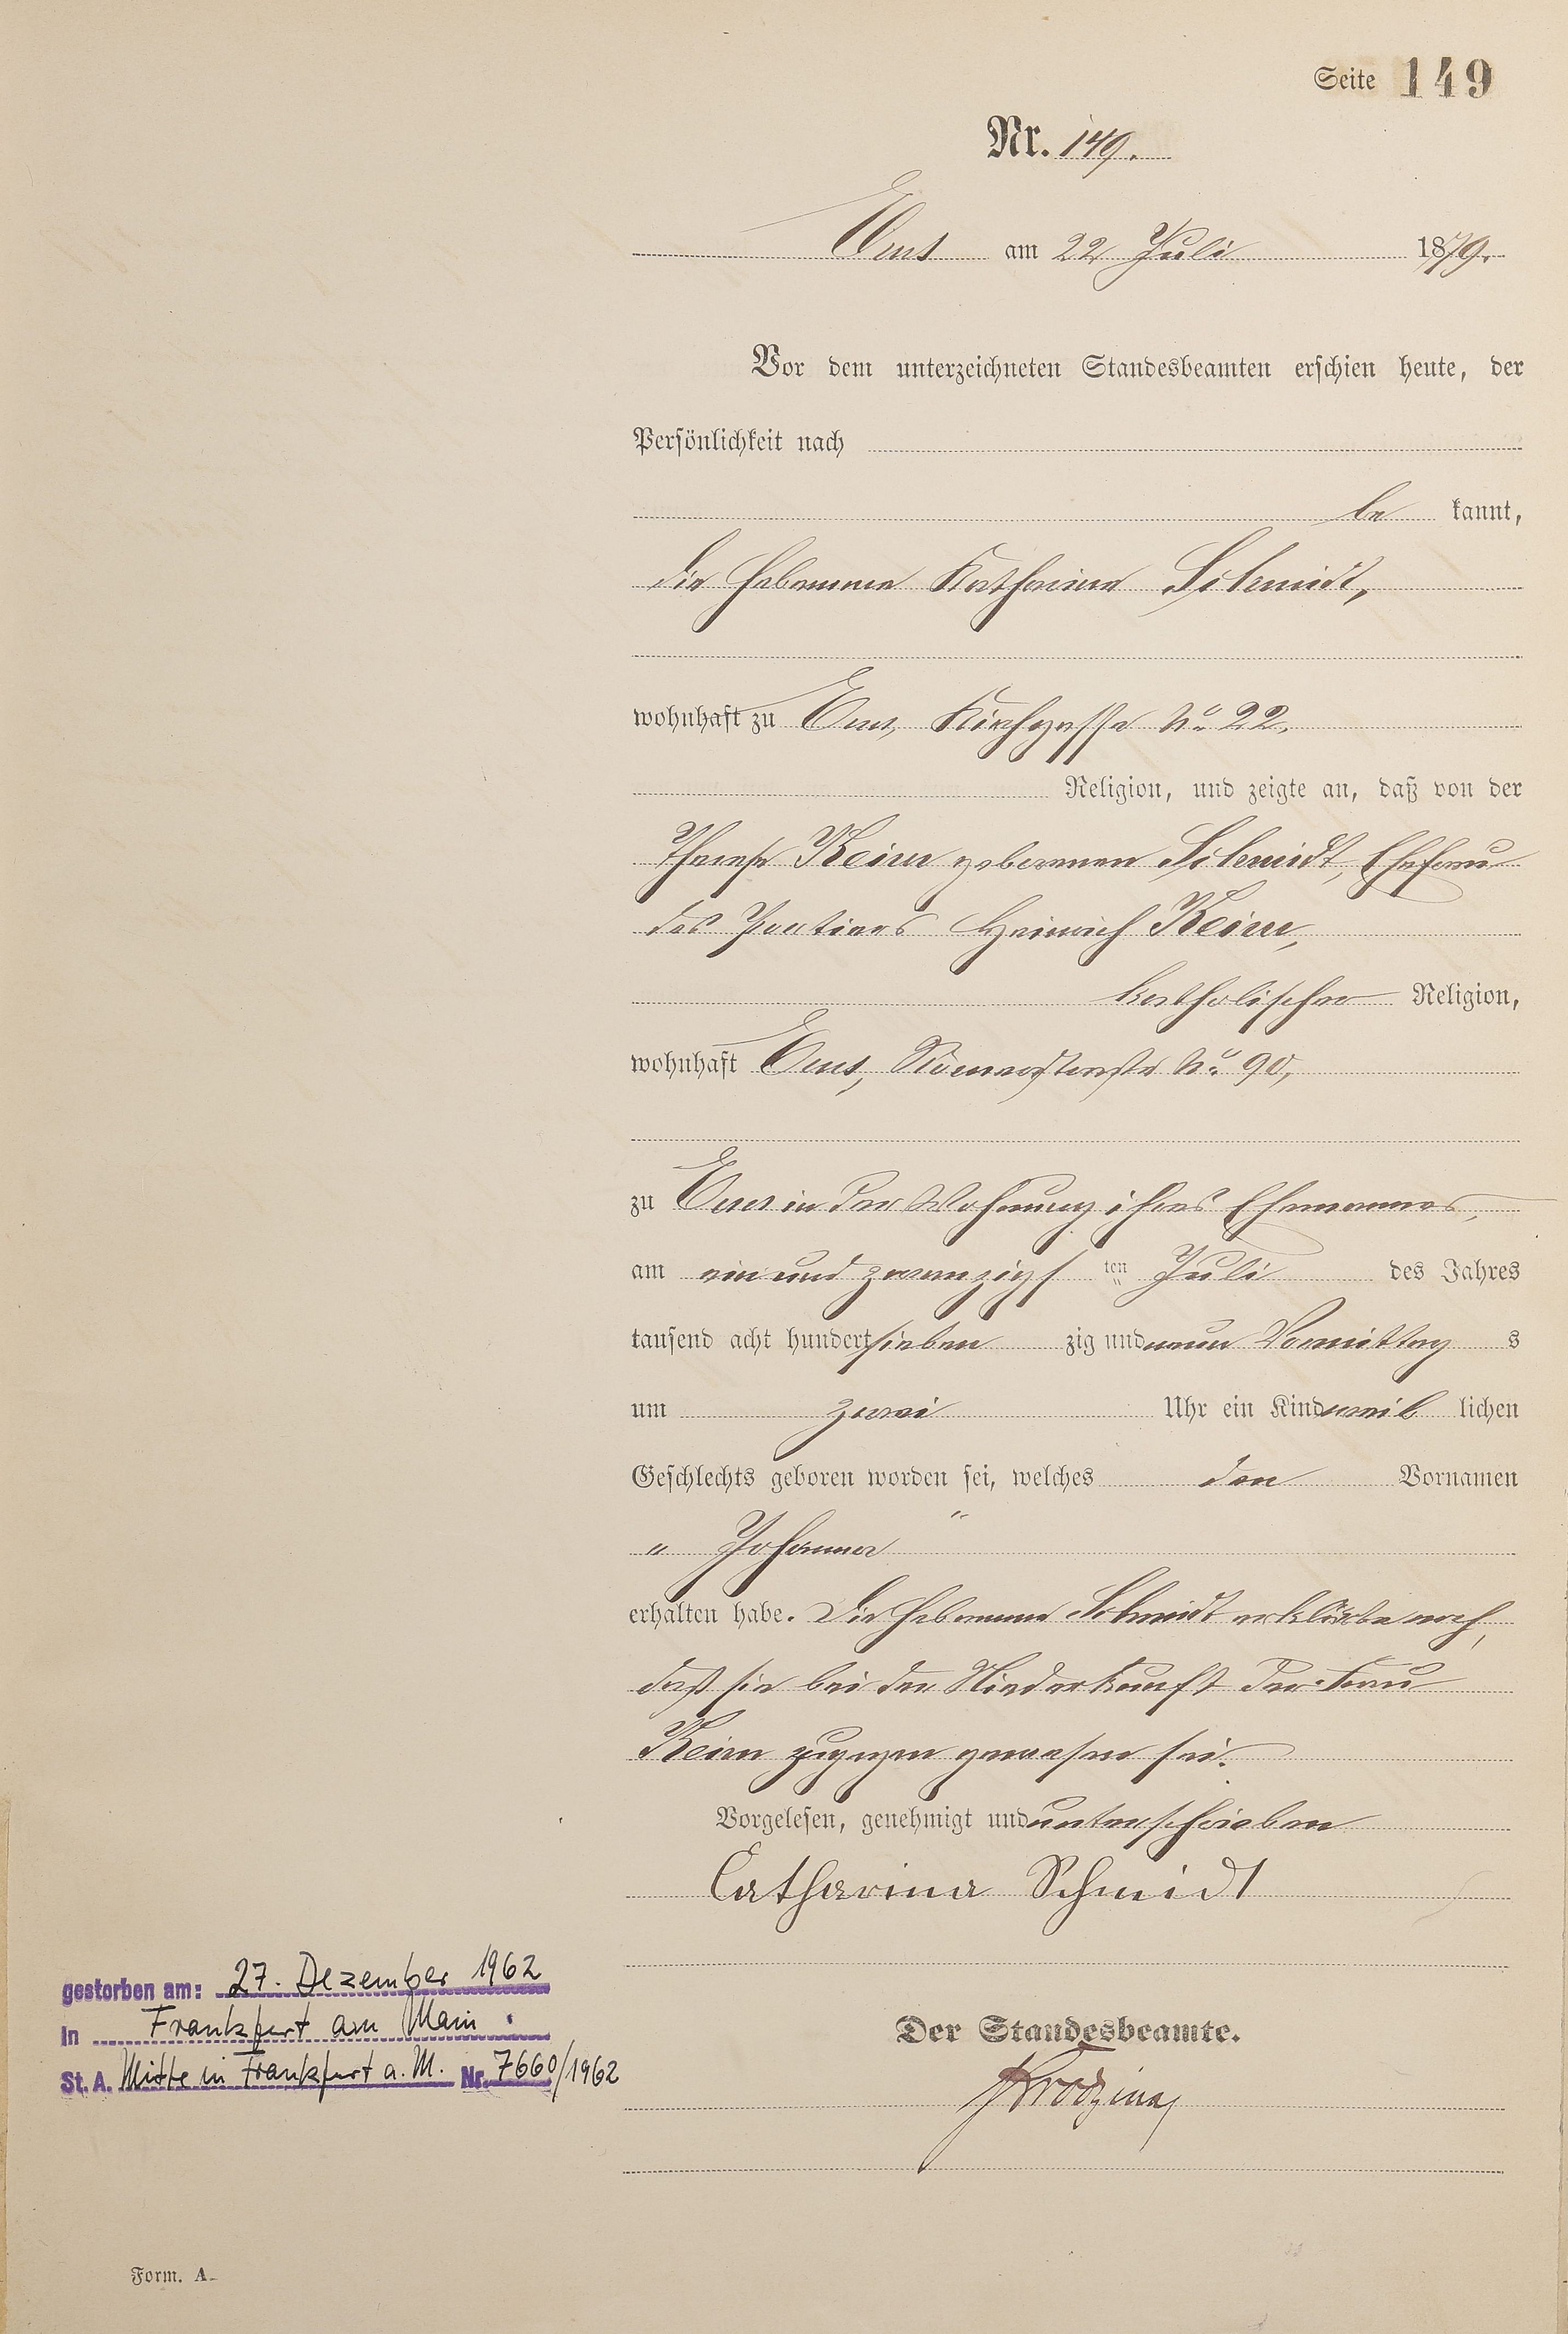 Seite 149
Nr. 149.
Ems am 22 Juli 1879.
Vor dem unterzeichneten Standesbeamten erschien heute, der
Persönlichkeit nach
be kannt,
die Hebamme Katharina Schmidt,
wohnhaft zu Ems, Kirchgasse No 22,
Religion, und zeigte an, daß von der
Therese Keim geborenen Schmidt, Ehefrau
des Portiers Heinrich Keim,
katholischer Religion,
wohnhaft Ems, Römerstraße No 90,
zu Ems in der Wohnung ihres Ehemannes,
am ein und zwanzigs ten Juli des Jahres
tausend acht hundert sieben zig und neun Vormittag s
um zwei Uhr ein Kind weib lichen
Geschlechts geboren worden sei, welches den Vornamen
" Johanna "
erhalten habe. Die Hebamme Schmidt erklärte noch,
daß sie bei der Niederkunft der Frau
Keim zugegen gewesen sei.
Vorgelesen, genehmigt und unterschrieben
Catharina Schmidt
gestorben am: 27. Dezember 1962
in Frankfurt am Main.
St. A. Mitte in Frankfurt a. M. Nr. 7660/1962
Der Standesbeamte.
Form. A.